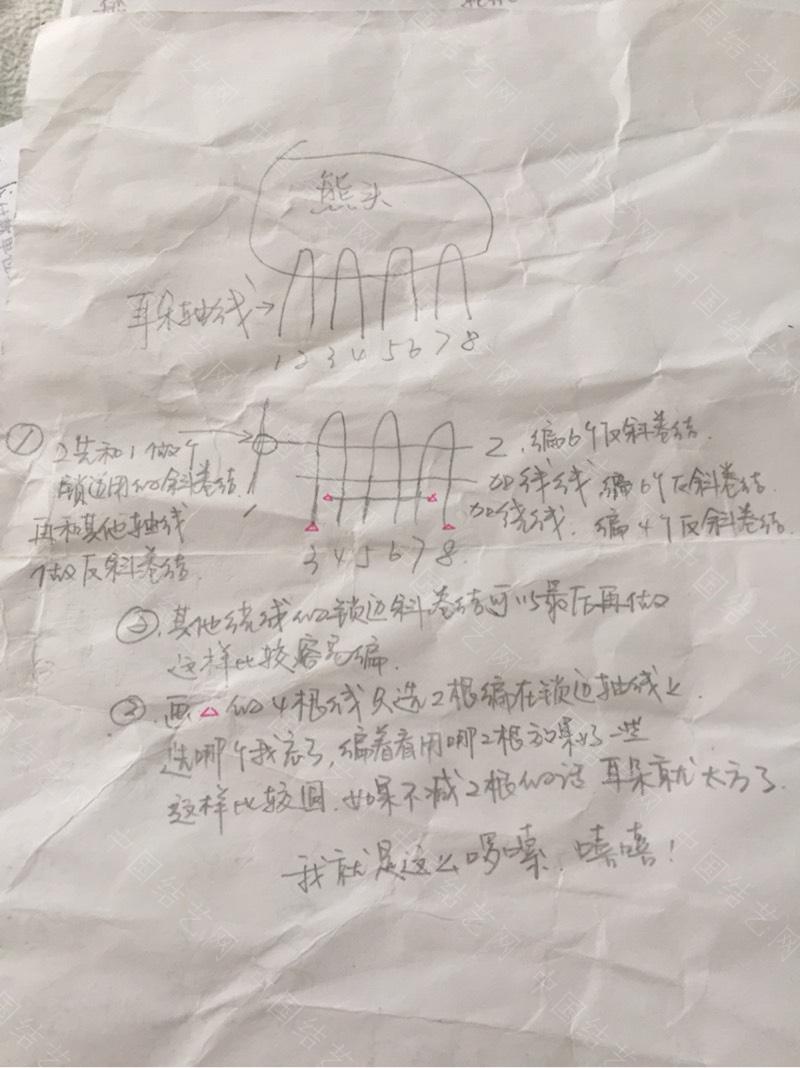 熊头
耳朵轴线→
1 2 3 4 5 6 7 8
① 2先和1做个
锁边用的斜卷结
再和其他轴线
做反斜卷结.
2. 编6个反斜卷结.
加绕线 编6个反斜卷结.
加绕线. 编4个反斜卷结.
3 4 5 6 7 8.
②.其他绕线的锁边斜卷结可以最后再做
这样比较容易编.
③.画△的4根线只选2根编在锁边轴线上.
选哪个我忘了,编着看用哪2根效果好一些
这样比较圆.如果不减2根的话 耳朵就太方了.
我就是这么啰嗦.嘻嘻!
中国结艺网